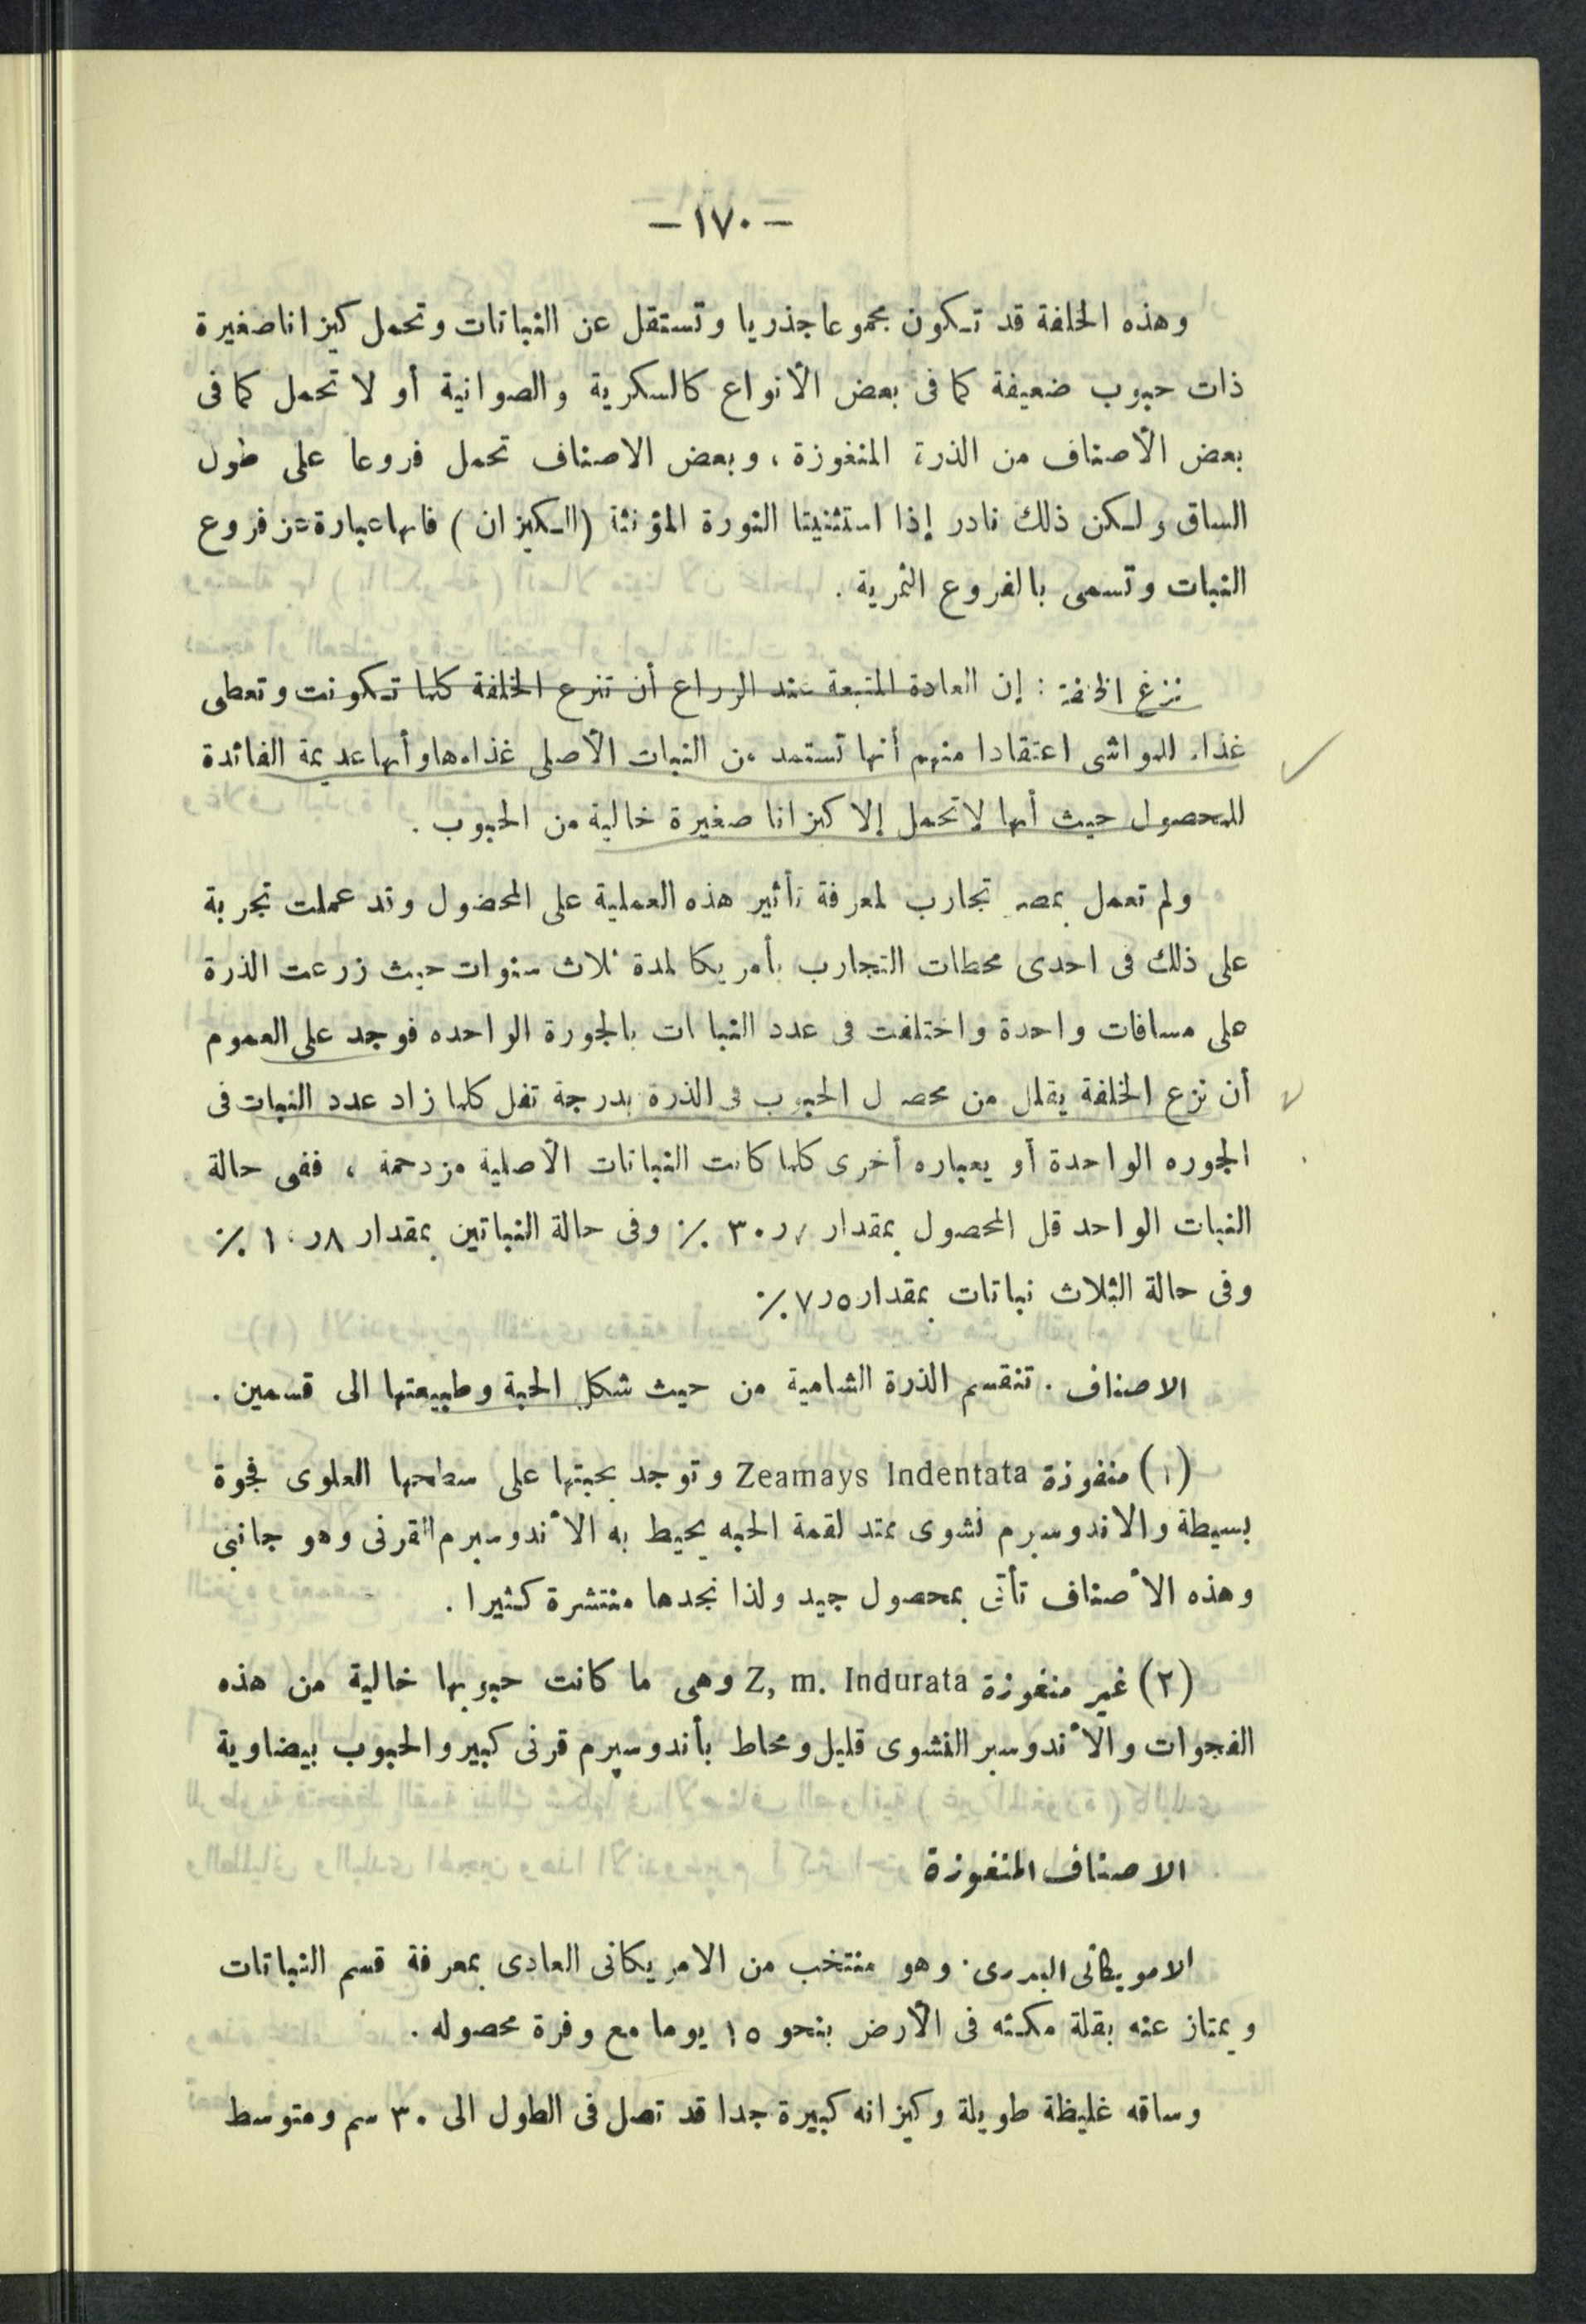 — ١٧٠ —
وهذه الخلفة قد تكون مجموعا جذريا وتستقل عن النباتات وتحمل كيزانا صغيرة
ذات حبوب ضعيفة كما فى بعض الأنواع كالسكرية والصوانية أو لا تحمل كما فى
بعض الأصناف من الذرة المنغوزة ، وبعض الاصناف تحمل فروعا على طول
الساق ولكن ذلك نادر إذا استثنينا النورة المؤنثة (الكيزان) فانها عبارة عن فروع
النبات وتسمى بالفروع الثمرية .
نزع الخلفة : إن العادة المتبعة عند الزراع أن تنزع الخلفة كلما تكونت وتعطى
غذاء للمواشى اعتقادا منهم أنها تستمد من النبات الأصلى غذاءها وأنها عديمة الفائدة
للمحصول حيث أنها لا تحمل إلا كيزانا صغيرة خالية من الحبوب .
ولم تعمل بمصر تجارب لمعرفة تأثير هذه العملية على المحضول وقد عملت تجربة
على ذلك فى احدى محطات التجارب بأمريكا لمدة ثلاث سنوات حيث زرعت الذرة
على مسافات واحدة واختلفت فى عدد النباتات بالجورة الواحده فوجد على العموم
أن نزع الخلفة يقلل من محصول الحبوب فى الذرة بدرجة تقل كلما زاد عدد النبات فى
الجوره الواحدة أو بعباره أخرى كلما كانت النباتات الأصلية مزدحمة ، ففى حالة
النبات الواحد قل المحصول بمقدار ر٣٠ ٪ وفى حالة النباتين بمقدار ٨ر١٠ ٪
وفى حالة الثلاث نباتات بمقدار ٥ر٧ ٪
الاصناف . تنقسم الذرة الشامية من حيث شكل الحبة وطبيعتها الى قسمين .
(١) منغوزة Zeamays Indentata وتوجد بحبتها على سطحها العلوى فجوة
بسيطة والاندوسبرم نشوى يمتد لقمة الحبه يحيط به الأندوسبرم القرنى وهو جانبى
وهذه الأصناف تأتى بمحصول جيد ولذا نجدها منتشرة كثيرا .
(٢) غير منغوزة Z, m. Indurata وهى ما كانت حبوبها خالية من هذه
الفجوات والأندوسبر النشوى قليل ومحاط بأندوسپرم قرنى كبير والحبوب بيضاوية
الاصناف المنغوزة
الامريكانى البدرى . وهو منتخب من الامريكانى العادى بمعرفة قسم النباتات
ويمتاز عنه بقلة مكثه فى الأرض بنحو ١٥ يوما مع وفرة محصوله .
وساقه غليظة طويلة وكيزانه كبيرة جدا قد تصل فى الطول الى ٣٠ سم ومتوسط